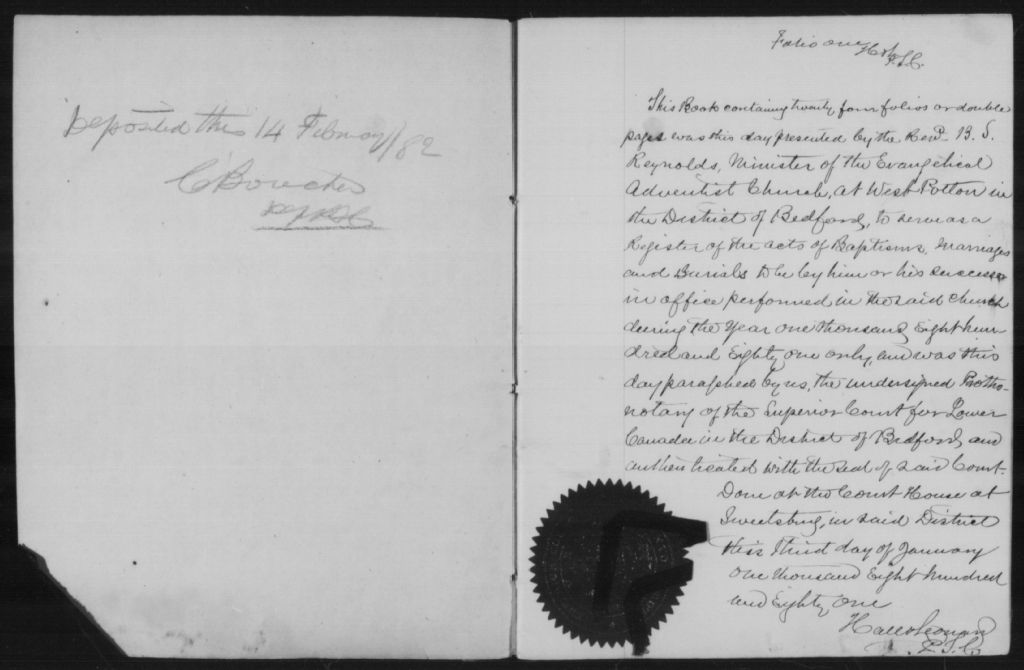 Deposited this 14 February/82
C Boucher
Folio one
P.S.C.
This Book containing twenty four folios or double
pages was this day presented by the Revd. B. S.
Reynolds, Minister of the Evangelical
Adventist Church, at West Potton in
the District of Bedford, to serve as a
Register of the acts of Baptisms, Marriages
and Burials to be by him or his successor
in office performed in the said church
during the Year one thousand Eight hun
dred and Eighty one only, and was this
day paraphed by us, the undersigned Protho-
notary of the Superior Court for Lower
Canada in the District of Bedford, and
authenticated with the seal of said Court.
Done at the Court House at
Sweetsburg, in said District
this third day of January
one thousand Eight hundred
and Eighty one
Hall & Leonard
P.S.C.